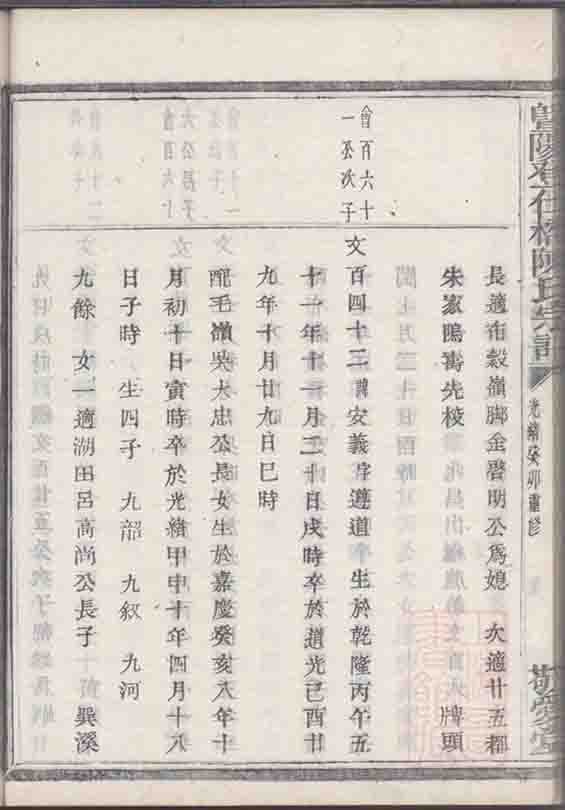 暨陽孝仁橋陳氏宗譜
光緒癸卯重修
敬愛堂
長適布穀嶺脚金啓明公爲媳 次適廿五都
朱家鴫壽先梭 牌頭
曾百六十
一公次子
文百四十三諱安義字遵道生於乾隆丙午五
十一年十一月二十日戌時卒於道光己酉廿
九年十月廿九日巳時
配毛嶺吳大忠公長女生於嘉慶癸亥八年十
月初十日寅時卒於光緒甲申十年四月十八
日子時 生四子 九韶 九叙 九河
九餘 女一適湖田呂高尚公長子 巽溪